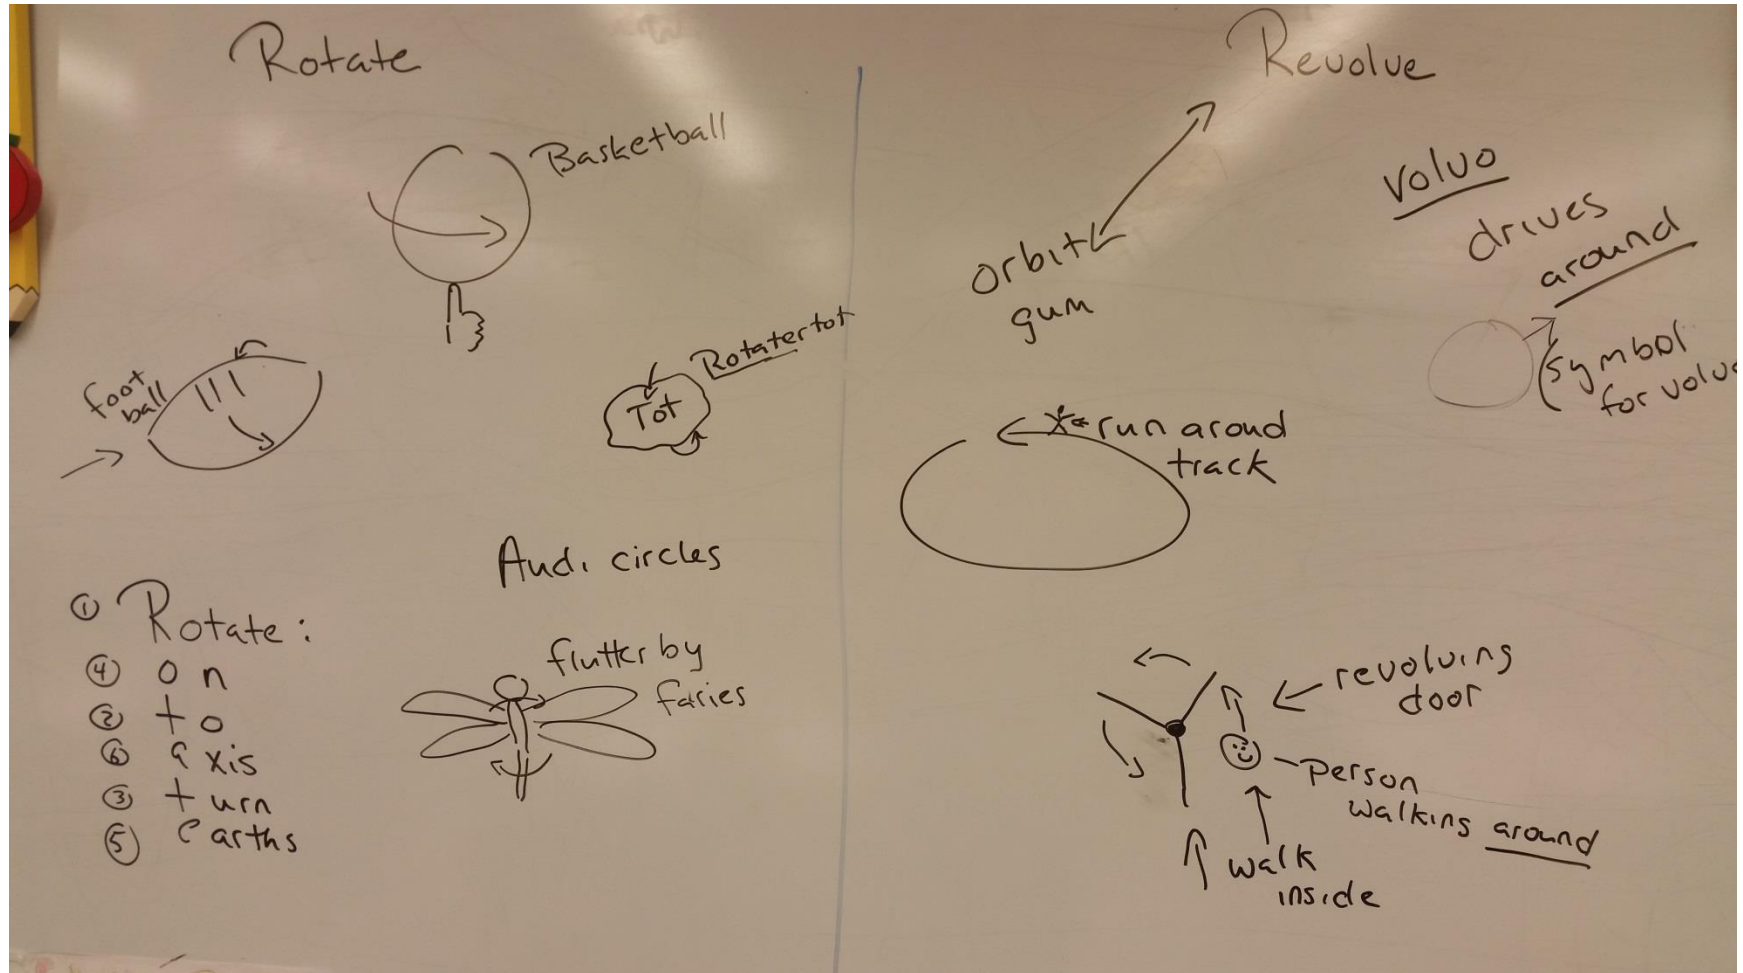 Rotate
Basketball
foot
ball
Rotatertot
Tot
Audi circles
① Rotate:
④ on
② to
⑥ axis
③ turn
⑤ earths
flutter by
faries
Revolve
orbit
gum
volvo
drives
around
(symbol
for volvo
run aroud
track
revolving
door
person
walking around
walk
inside